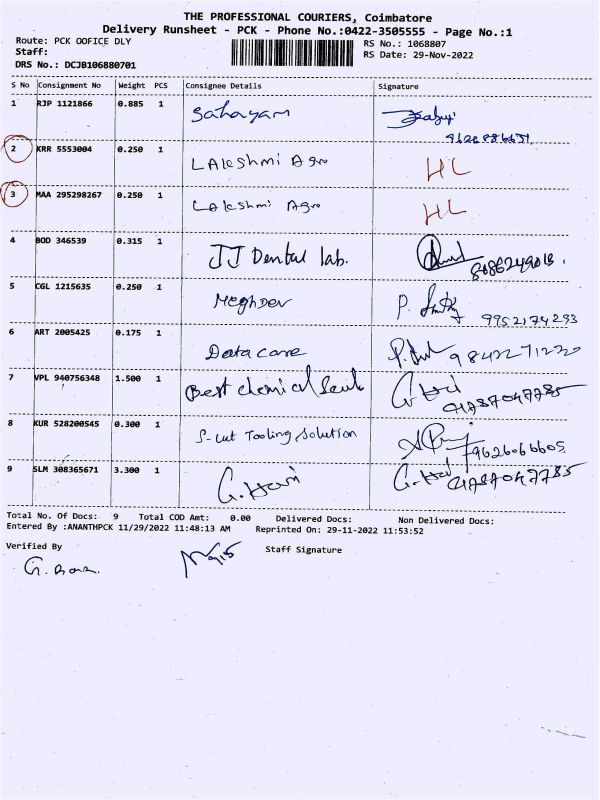 THE PROFESSIONAL COURIERS, Coimbatore
Delivery Runsheet - PCK - Phone No.:0422-3505555 - Page No.:1
Route: PCK OOFICE DLY
RS No.: 1068807
Staff:
RS Date: 29-Nov-2022
DRS No.: DCJB106880701
S No Consignment No Weight PCS Consignee Details Signature
1 RJP 1121866 0.885 1 Sahayam
2 KRR 5553004 0.250 1 LAkshmi Agro HL
3 MAA 295298267 0.250 1 Lakshmi Agro HL
4 BOD 346539 0.315 1 JJ Dental lab.
5 CGL 1215635 0.250 1 MeghDev P.
9952174293
6 ART 2005425 0.175 1 Data care 9842271220
7 VPL 940756348 1.500 1 Best chemical
8 KUR 528200545 0.300 1 S-cut Tooling Solution
9626066605
9 SLM 308365671 3.300 1 G. Hari
Total No. Of Docs: 9 Total COD Amt: 0.00 Delivered Docs: Non Delivered Docs:
Entered By :ANANTHPCK 11/29/2022 11:48:13 AM Reprinted On: 29-11-2022 11:53:52
Verified By Staff Signature